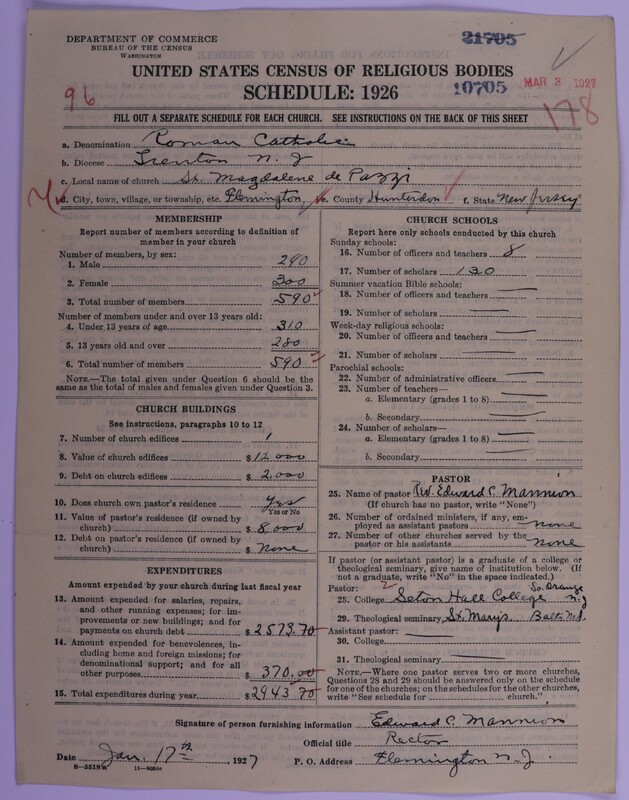 DEPARTMENT OF COMMERCE
BUREAU OF THE CENSUS
WASHINGTON
21705
UNITED STATES CENSUS OF RELIGIOUS BODIES
SCHEDULE: 1926
96
10705
MAR 3 1927
178
FILL OUT A SEPARATE SCHEDULE FOR EACH CHURCH. SEE INSTRUCTIONS ON THE BACK OF THIS SHEET
a. Denomination Roman Catholic
b. Diocese Trenton N. J
c. Local name of church St. Magdalene de Pazzi
d. City, town, village, or township, etc. Flemington e. County Hunterdon f. State New Jersey
MEMBERSHIP
Report number of members according to definition of member in your church
Number of members, by sex:
1. Male 290
2. Female 300
3. Total number of members 590
Number of members under and over 13 years old:
4. Under 13 years of age 310
5. 13 years old and over 280
6. Total number of members 590
NOTE.—The total given under Question 6 should be the
same as the total of males and females given under Question 3.
CHURCH BUILDINGS
See instructions, paragraphs 10 to 12
7. Number of church edifices 1
8. Value of church edifices $12 000
9. Debt on church edifices $2,000
10. Does church own pastor's residence Yes
Yes or No
11. Value of pastor's residence (if owned by
church) $8,000
12. Debt on pastor's residence (if owned by
church) $None
EXPENDITURES
Amount expended by your church during last fiscal year
13. Amount expended for salaries, repairs,
and other running expenses; for im-
provements or new buildings; and for
payments on church debt $2573.70
14. Amount expended for benevolences, in-
cluding home and foreign missions; for
denominational support; and for all
other purposes $370.00
15. Total expenditures during year $2943.70
CHURCH SCHOOLS
Report here only schools conducted by this church
Sunday schools:
16. Number of officers and teachers 8
17. Number of scholars 130
Summer vacation Bible schools:
18. Number of officers and teachers
19. Number of scholars
Week-day religious schools:
20. Number of officers and teachers
21. Number of scholars
Parochial schools:
22. Number of administrative officers
23. Number of teachers—
a. Elementary (grades 1 to 8)
b. Secondary
24. Number of scholars—
a. Elementary (grades 1 to 8)
b. Secondary
PASTOR
25. Name of pastor Rev. Edward C. Mannion
(If church has no pastor, write "None")
26. Number of ordained ministers, if any, em-
ployed as assistant pastors none
27. Number of other churches served by the
pastor or his assistants none
If pastor (or assistant pastor) is a graduate of a college or
theological seminary, give name of institution below. (If
not a graduate, write "No" in the space indicated.)
Pastor: So. Orange
28. College Seton Hall College N. J
29. Theological seminary St. Marys Balt. Md.
Assistant pastor:
30. College
31. Theological seminary
NOTE.—Where one pastor serves two or more churches,
Questions 28 and 29 should be answered only on the schedule
for one of the churches; on the schedules for the other churches,
write "See schedule for church."
Signature of person furnishing information Edward C. Mannion
Official title Rector
Date Jan. 17th, 1927 P. O. Address Flemington N. J.